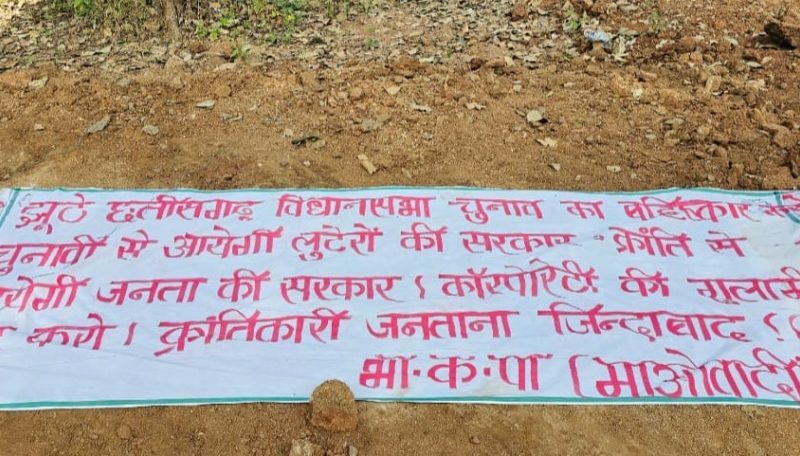 झूठे छत्तीसगढ़ विधानसभा चुनाव का बहिष्कार
चुनावों से आयेगी लुटेरों की सरकार क्रांति से
जनता की सरकार । कॉरपोरेटी की गुलामी
करो । क्रांतिकारी जनताना जिन्दाबाद !
भा.क.पा (माओवादी